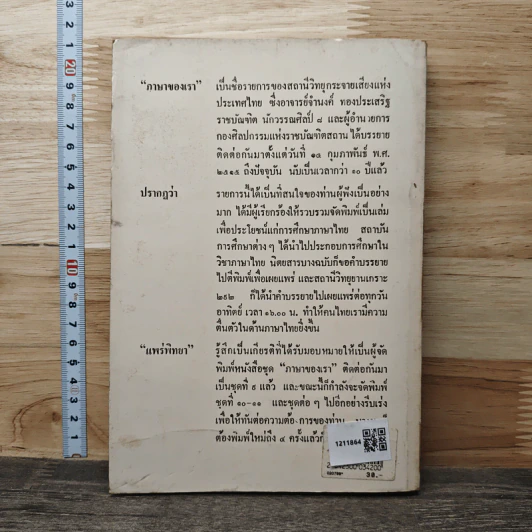 “ภาษาของเรา” เป็นชื่อรายการของสถานีวิทยุกระจายเสียงแห่ง
ประเทศไทย ซึ่งอาจารย์จำนงค์ ทองประเสริฐ
ราชบัณฑิต นักวรรณศิลป์ ๘ และผู้อำนวยการ
กองศิลปกรรมแห่งราชบัณฑิตสถาน ได้บรรยาย
ติดต่อกันมาตั้งแต่วันที่ ๑๔ กุมภาพันธ์ พ.ศ.
๒๕๑๕ ถึงปัจจุบัน นับเป็นเวลากว่า ๑๐ ปีแล้ว
ปรากฏว่า รายการนี้ได้เป็นที่สนใจของท่านผู้ฟังเป็นอย่าง
มาก ได้มีผู้เรียกร้องให้รวบรวมจัดพิมพ์เป็นเล่ม
เพื่อประโยชน์แก่การศึกษาภาษาไทย สถาบัน
การศึกษาต่าง ๆ ได้นำไปประกอบการศึกษาใน
วิชาภาษาไทย นิตยสารบางฉบับก็ขอคำบรรยาย
ไปตีพิมพ์เพื่อเผยแพร่ และสถานีวิทยุยานเกราะ
ก็ได้นำคำบรรยายไปเผยแพร่ต่อทุกวัน
อาทิตย์ เวลา ๑๖.๐๐ น. ทำให้คนไทยเรามีความ
ตื่นตัวในด้านภาษาไทยยิ่งขึ้น
“แพร่พิทยา” รู้สึกเป็นเกียรติที่ได้รับมอบหมายให้เป็นผู้จัด
พิมพ์หนังสือชุด “ภาษาของเรา” ติดต่อกันมา
เป็นชุดที่ ๙ แล้ว และขณะนี้ก็กำลังจะจัดพิมพ์
ชุดที่ ๑๐-๑๑ และชุดต่อ ๆ ไปอีกอย่างรีบเร่ง
เพื่อให้ทันต่อความต้องการของท่าน
ต้องพิมพ์ใหม่ถึง ๔ ครั้งแล้ว
1211864
30.-